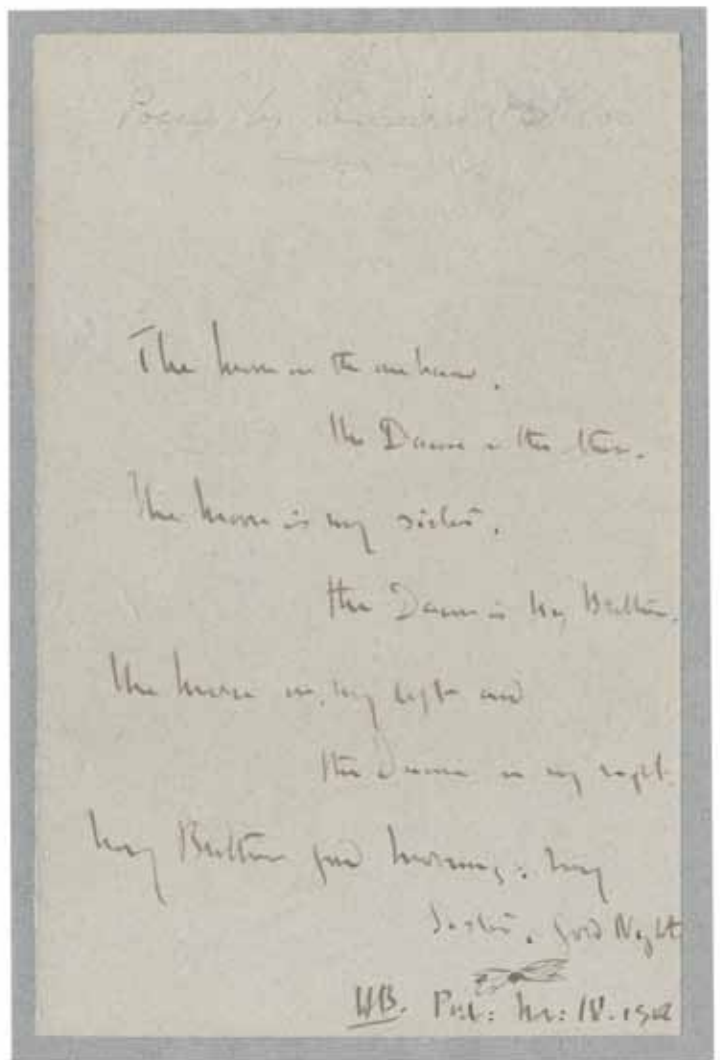 The moon on the one hand,
the Dawn on the other.
The moon is my sister,
the Dawn is my Brother.
The moon on my left and
the Dawn on my right.
My Brother good morning: my
Sister, good Night
HB.